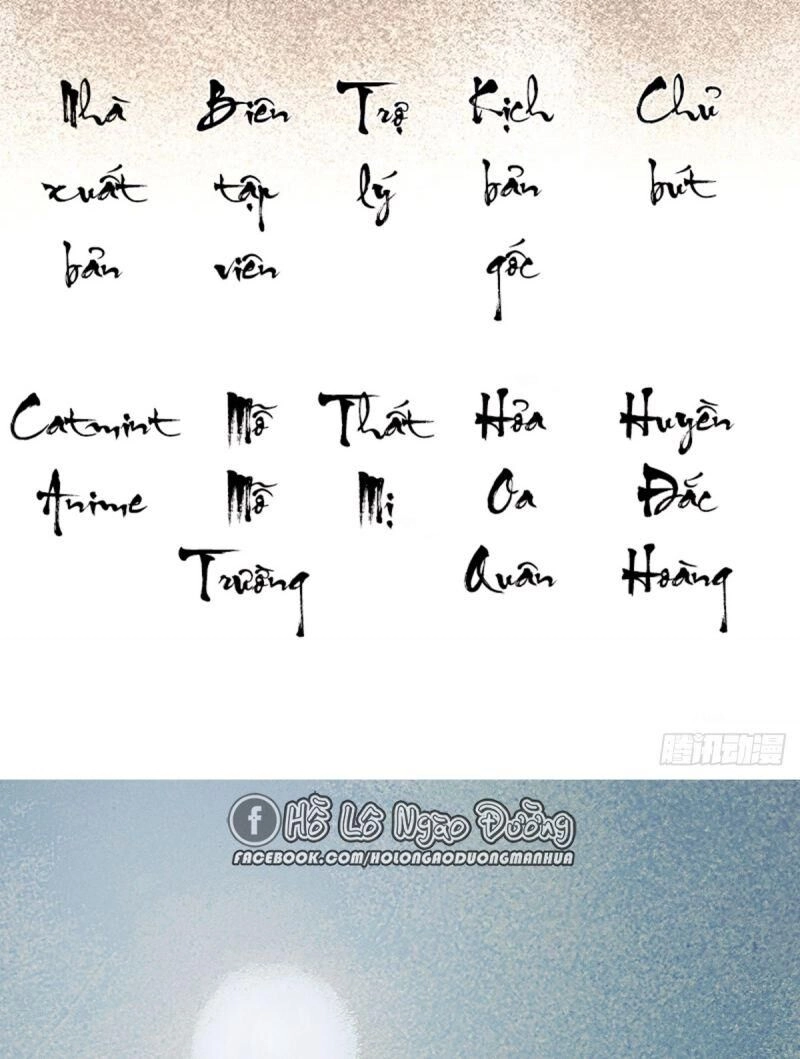 Nhà Biên Trợ Kịch Chủ
xuất tập lý bản bút
bản viên gốc
Catmint Mỗ Thất Hỏa Huyền
Anime Mỗ Mị Oa Đắc
Trường Quân Hoàng
腾讯动漫
f Hồ Lô Ngào Đường
FACEBOOK.COM/HOLONGAODUONGMANHUA